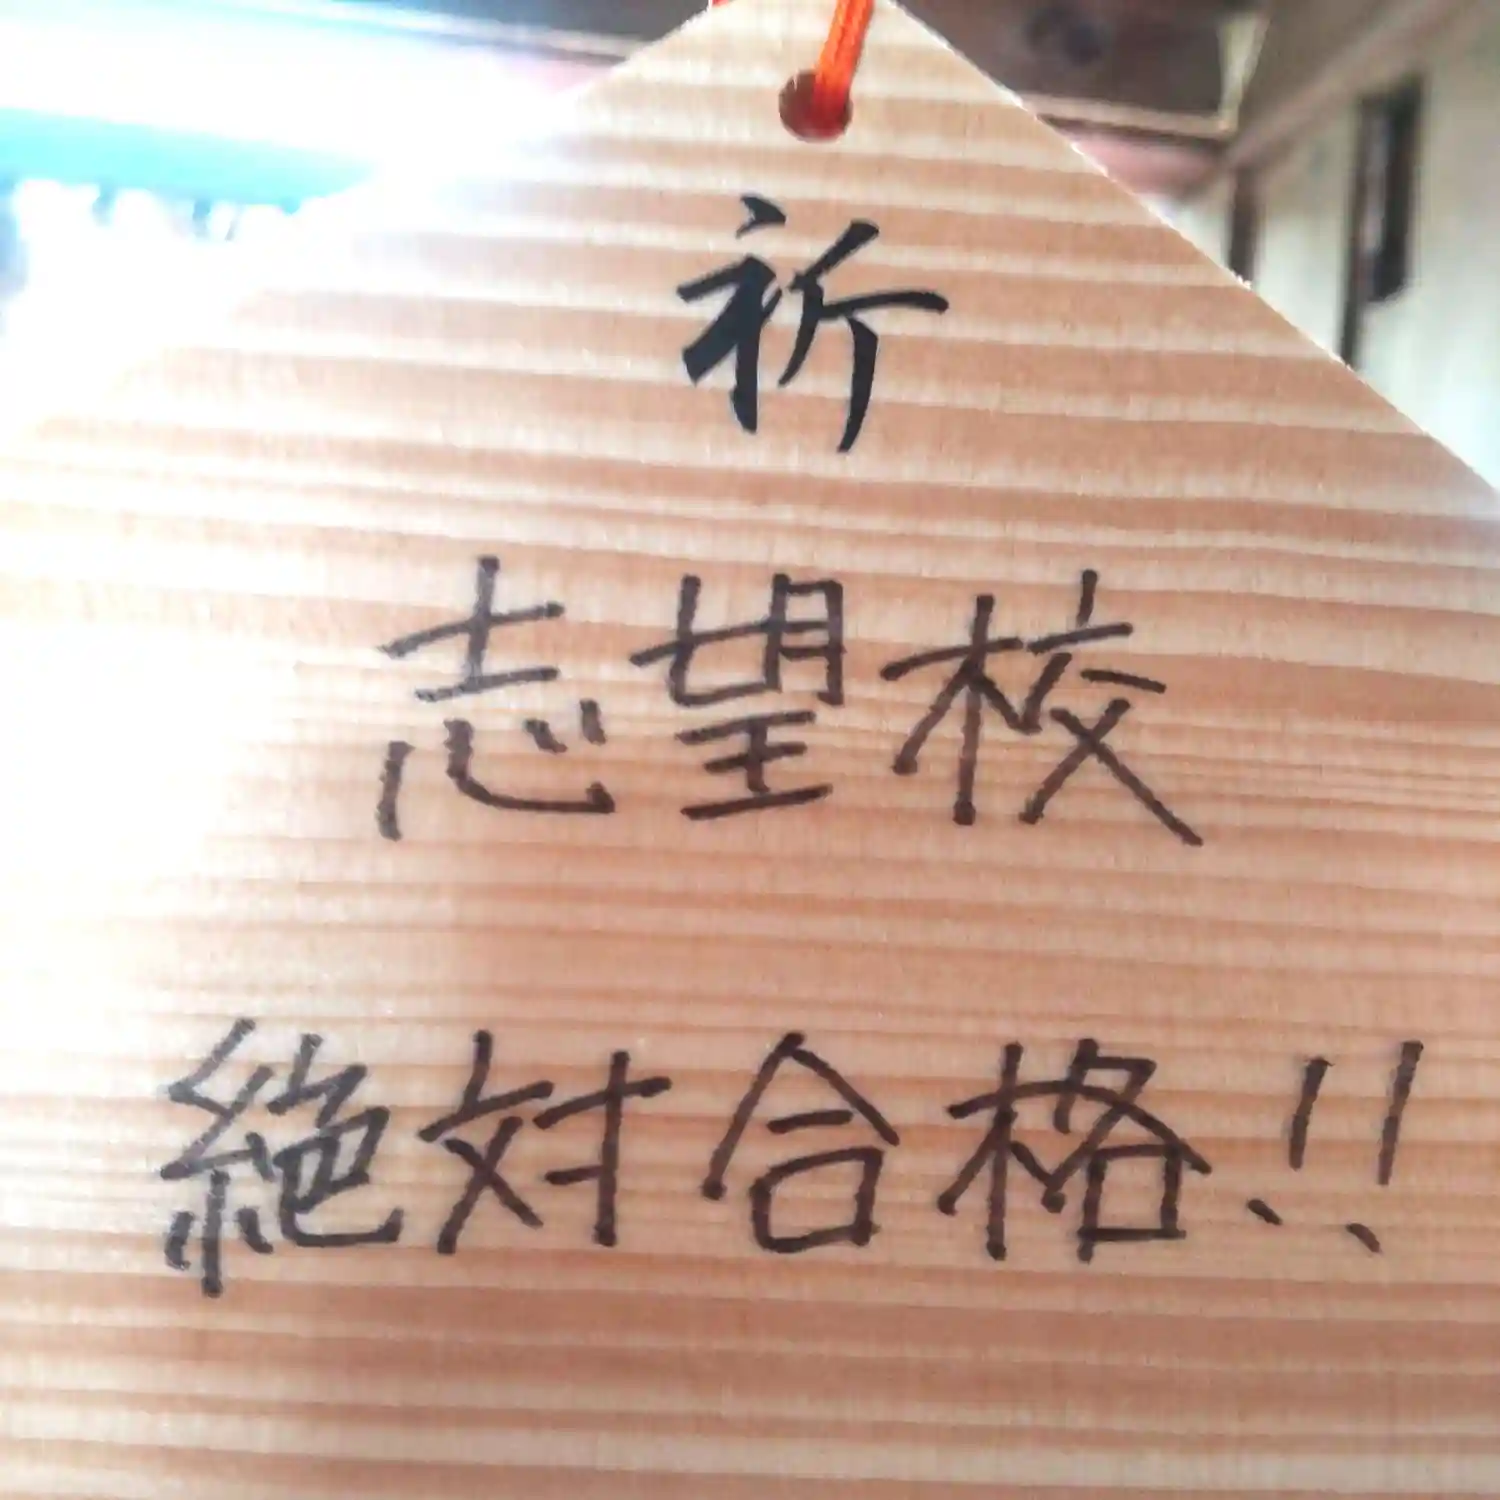 祈
志望校
絶対合格!!